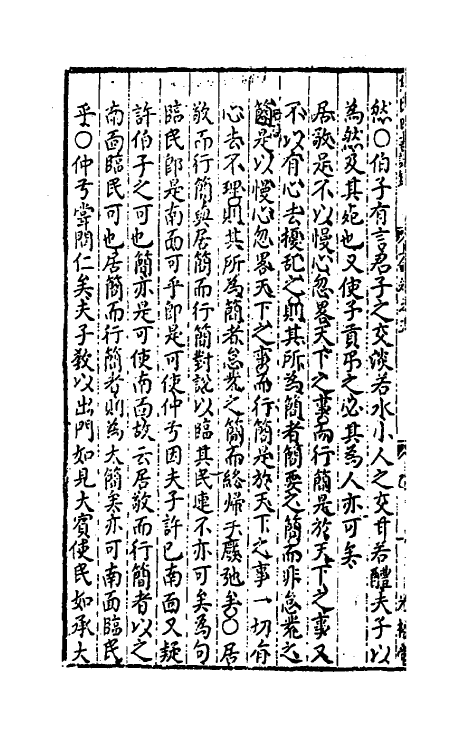 然○伯子有言君子之交淡若水小人之交甘若醴夫子以
為然及其死也又使子貢弔之必其為人亦可矣
居敬是不以慢心忽畧天下之事而行簡是於天下之事又
不以有心去擾亂之則其所為簡者簡要之簡而非怠荒之
簡是以慢心忽畧天下之事而行簡是於天下之事一切有
心去不理則其所為簡者怠荒之簡而終歸于廢弛矣○居
敬而行簡與居簡而行簡對說以臨其民連不亦可矣為句
臨民即是南面可乎即是可使仲弓因夫子許已南面又疑
許伯子之可也簡亦是可使南面故云居敬而行簡者以之
南面臨民可也居簡而行簡者則為大簡矣亦可南面臨民
乎○仲弓嘗問仁矣夫子教以出門如見大賓使民如承大